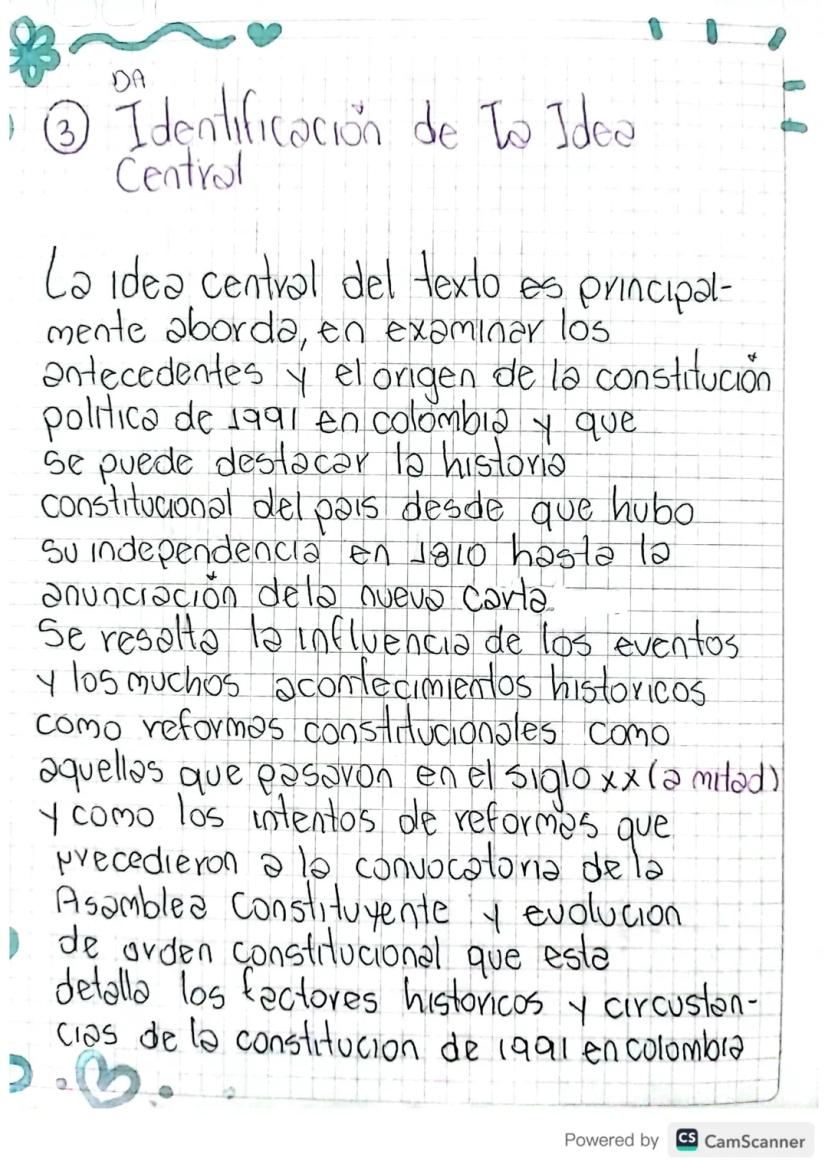 DA
③ Identificación de La Idea
Central
La idea central del texto es principal-
mente aborda, en examinar los
antecedentes y el origen de la constitución
politica de 1991 en colombia y que
se puede destacar la historia
constitucional del pais desde que hubo
su independencia en 1810 hasta la
anunciación dela nueva carta
Se resalta la influencia de los eventos
y los muchos acontecimientos historicos
como reformas constitucionales como
aquellas que pasaron en el siglo xx (a mitad)
y como los intentos de reformas que
precedieron a la convocatoria de la
Asamblea Constituyente y evolucion
de orden constitucional que esta
detalla los factores historicos y circustan-
cias de la constitucion de 1991 en colombia
Powered by CS CamScanner